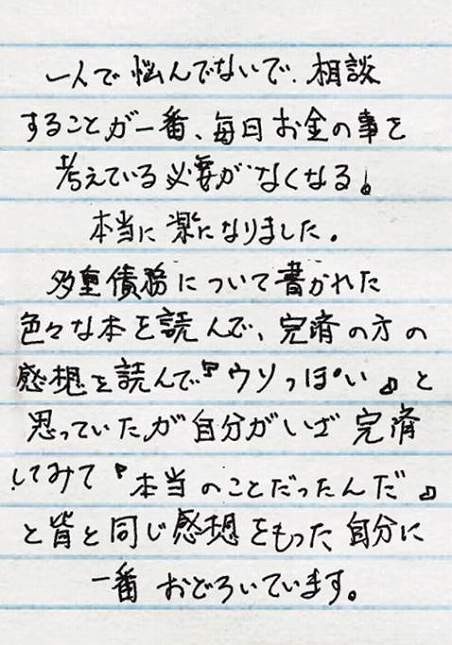 一人で悩んでないで、相談
することが一番、毎日お金の事を
考えている必要がなくなる!
本当に楽になりました。
多重債務について書かれた
色々な本を読んで、完済の方の
感想を読んで『ウソっぽい』と
思っていたが自分がいざ完済
してみて『本当のことだったんだ』
と皆と同じ感想をもった自分に
一番おどろいています。